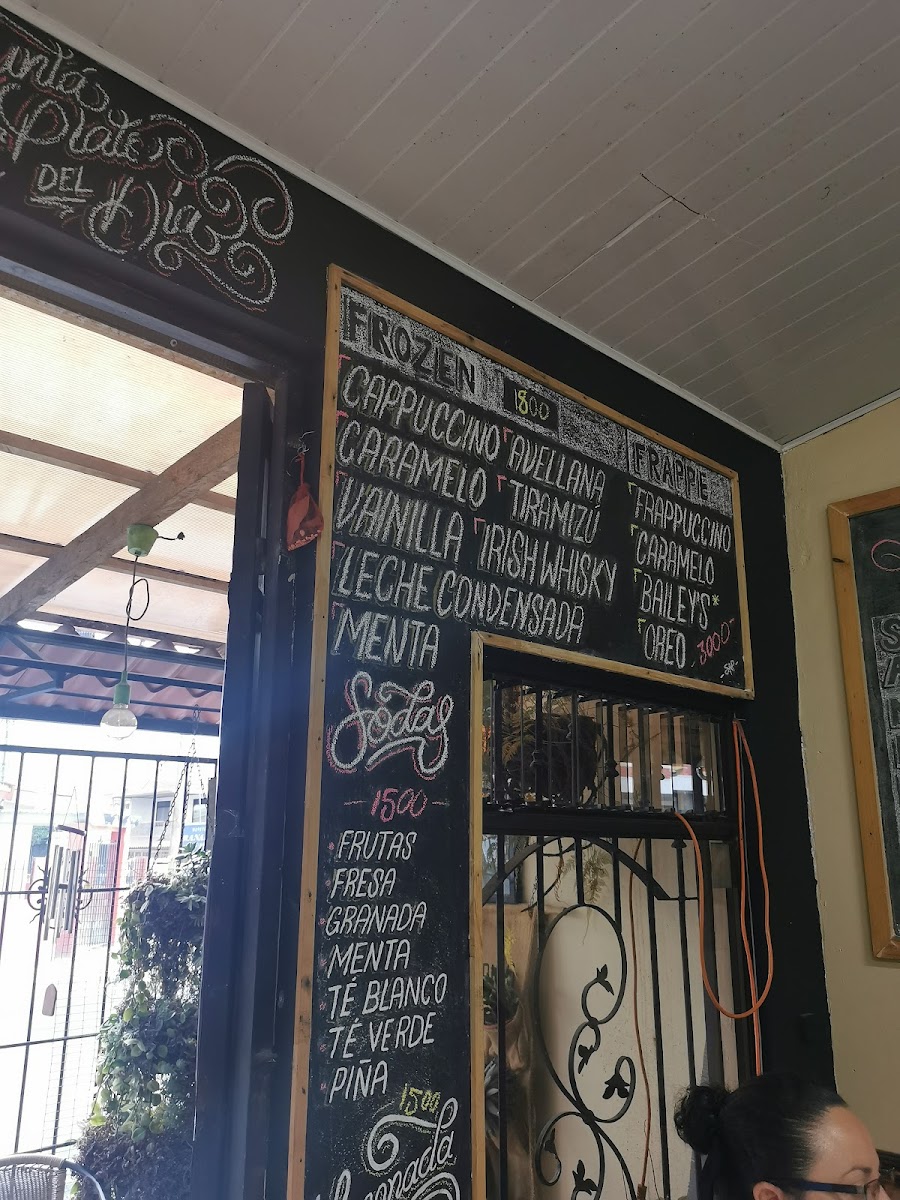 Plato
DEL Día
FROZEN 1800
CAPPUCCINO
CARAMELO
VAINILLA
LECHE CONDENSADA
MENTA
AVELLANA
TIRAMIZÚ
IRISH WHISKY
FRAPPE
FRAPPUCCINO
CARAMELO
BAILEY'S*
OREO 3000
Sodas
1500
FRUTAS
FRESA
GRANADA
MENTA
TÉ BLANCO
TÉ VERDE
PIÑA
1500